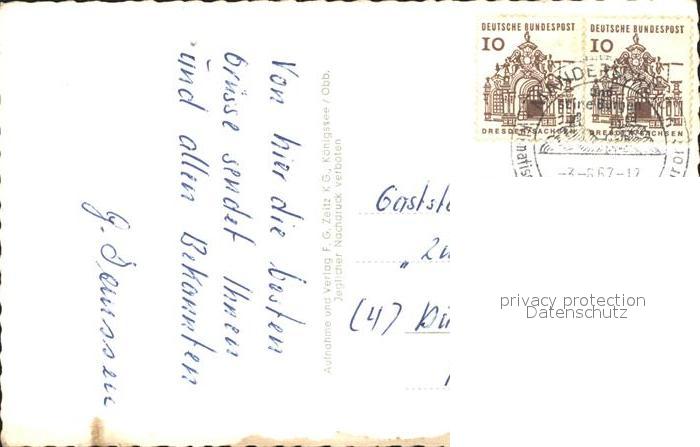 Von hier die besten
Grüsse sendet Ihnen
und allen Bekannten
G. Janssen
Aufnahme und Verlag F. G. Zeitz K G., Königssee / Obb.
Jeglicher Nachdruck verboten
DEUTSCHE BUNDESPOST
10
DRESDEN/SACHSEN
DEUTSCHE BUNDESPOST
10
DRESDEN/SACHSEN
MANDERSCHEID
und
seine Burgen
(4)
privacy protection
Datenschutz